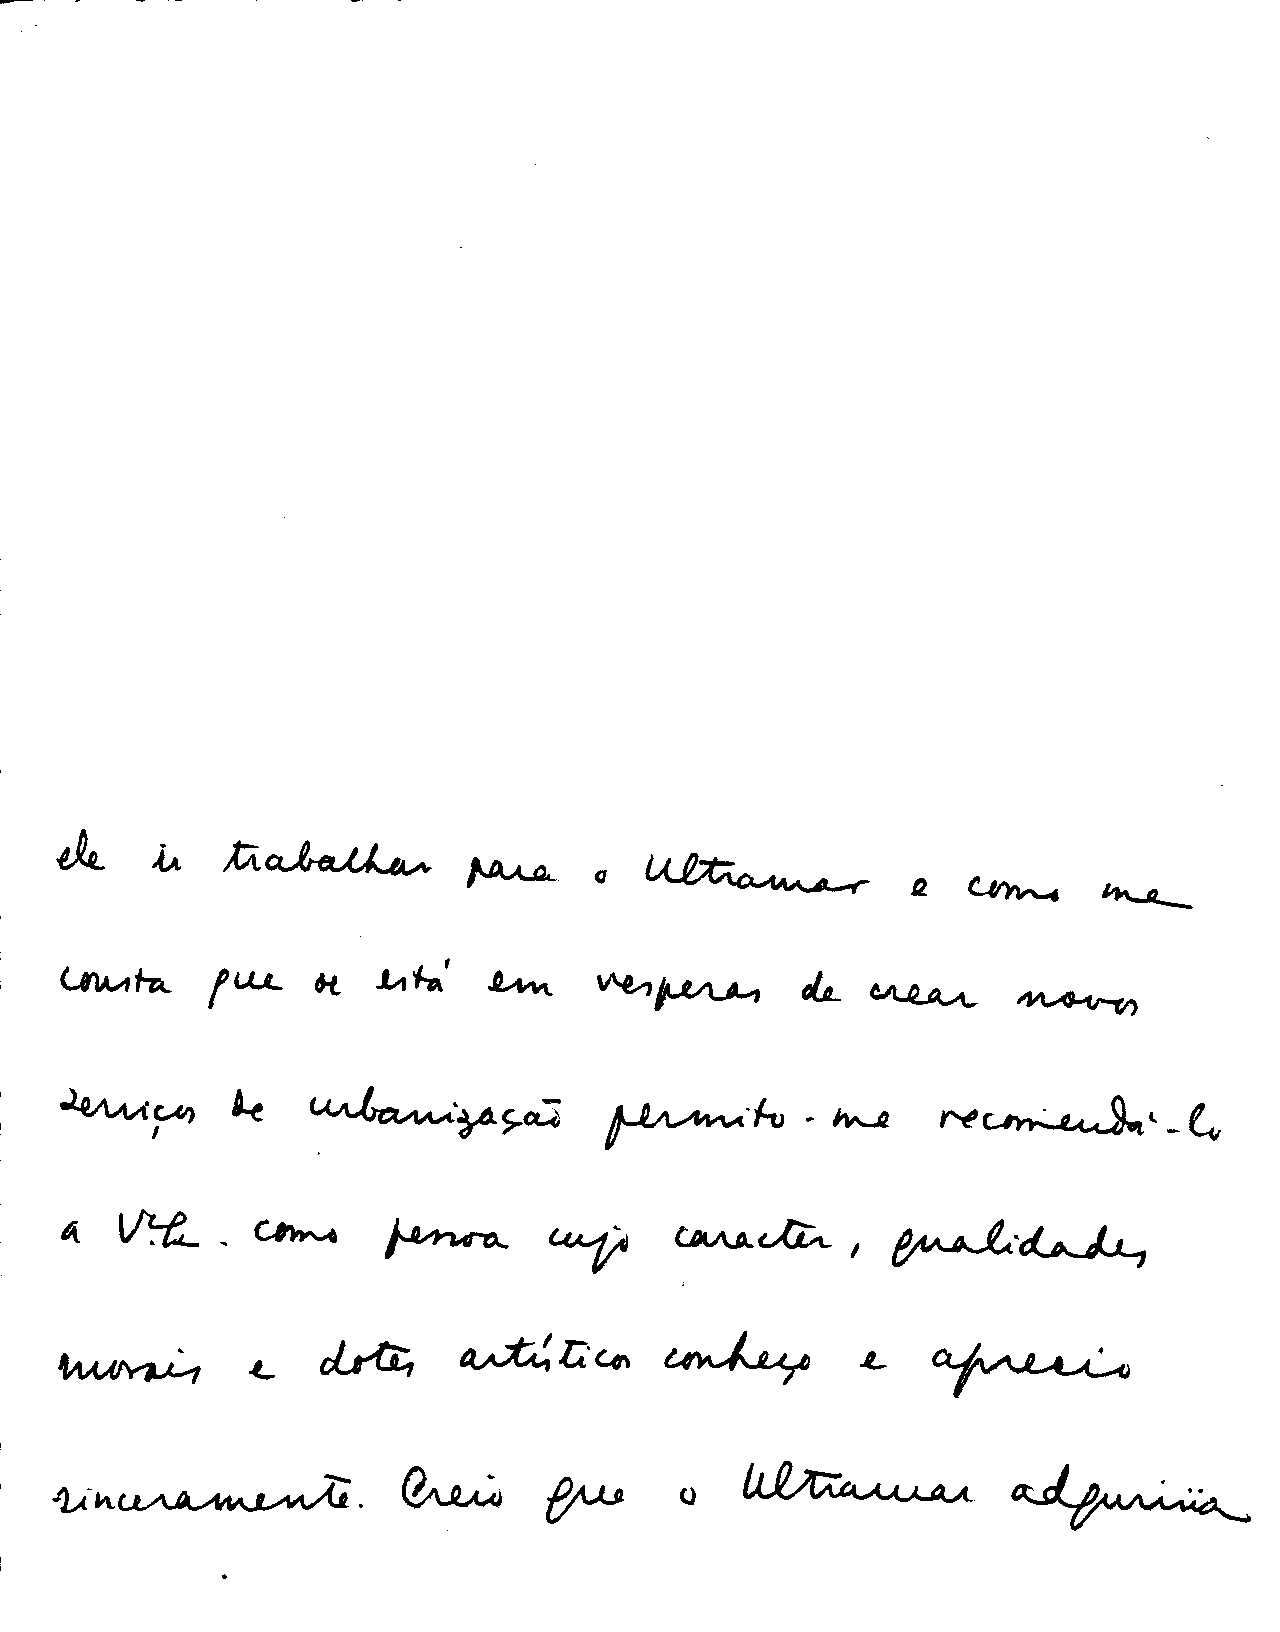 ele ir trabalhar para o Ultramar e como me
consta que se está em vesperas de crear novos
serviços de urbanização permito-me recomendá-lo
a V. Ex. como pessoa cujo caracter, qualidades
morais e dotes artísticos conheço e aprecio
sinceramente. Creio que o Ultramar adquiriria